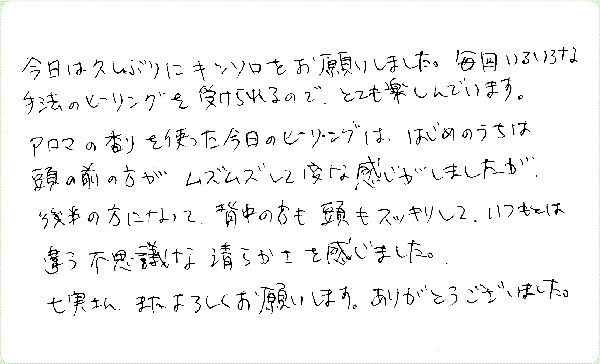 今日は久しぶりにキンソロをお願いしました。毎回いろいろな
手法のヒーリングを受けられるので、とても楽しんでいます。
アロマの香りを使った今日のヒーリングは、はじめのうちは
頭の前の方がムズムズして変な感じがしましたが、
後半の方になって、背中の方も頭もスッキリして、いつもとは
違う不思議な清らかさを感じました。
七実さん、またよろしくお願いします。ありがとうございました。